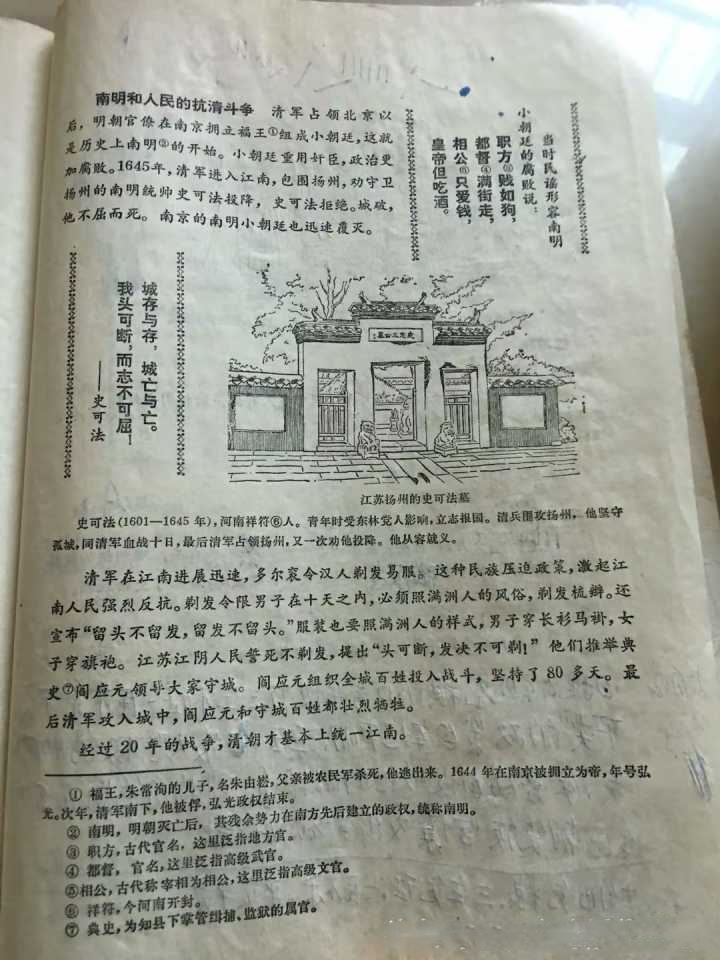 南明和人民的抗清斗争 清军占领北京以
后，明朝官僚在南京拥立福王①组成小朝廷，这就
是历史上南明②的开始。小朝廷重用奸臣，政治更
加腐败。1645年，清军进入江南，包围扬州，劝守卫
扬州的南明统帅史可法投降，史可法拒绝。城破，
他不屈而死。南京的南明小朝廷也迅速覆灭。
当时民谣形容南明
小朝廷的腐败说：
职方③贱如狗，
都督④满街走，
相公⑤只爱钱，
皇帝但吃酒。
城存与存，城亡与亡。
我头可断，而志不可屈！
——史可法
江苏扬州的史可法墓
史可法（1601—1645年），河南祥符⑥人。青年时受东林党人影响，立志报国。清兵围攻扬州，他坚守
孤城，同清军血战十日，最后清军占领扬州，又一次劝他投降。他从容就义。
清军在江南进展迅速，多尔衮令汉人剃发易服。这种民族压迫政策，激起江
南人民强烈反抗。剃发令限男子在十天之内，必须照满洲人的风俗，剃发梳辫。还
宣布“留头不留发，留发不留头。”服装也要照满洲人的样式，男子穿长衫马褂，女
子穿旗袍。江苏江阴人民誓死不剃发，提出“头可断，发决不可剃！”他们推举典
史⑦阎应元领导大家守城。阎应元组织全城百姓投入战斗，坚持了80多天。最
后清军攻入城中，阎应元和守城百姓都壮烈牺牲。
经过20年的战争，清朝才基本上统一江南。
① 福王，朱常洵的儿子，名朱由崧，父亲被农民军杀死，他逃出来。1644年在南京被拥立为帝，年号弘
光。次年，清军南下，他被俘，弘光政权结束。
② 南明，明朝灭亡后，其残余势力在南方先后建立的政权，统称南明。
③ 职方，古代官名，这里泛指地方官。
④ 都督，官名，这里泛指高级武官。
⑤相公，古代称宰相为相公，这里泛指高级文官。
⑥ 祥符，今河南开封。
⑦ 典史，为知县下掌管缉捕、监狱的属官。